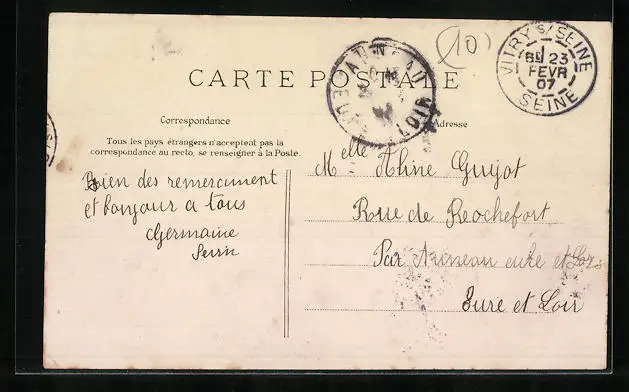 (10)
CARTE POSTALE
VITRY S/ SEINE
8E 23
FEVR
07
SEINE
Correspondance
Adresse
Tous les pays étrangers n'acceptent pas la
correspondance au recto, se renseigner à la Poste.
Bien des remerciment
et bonjour a tous
Germaine
Melle Aline Guyot
Rue de Rochefort
Par Auneau eure et Loir
Eure et Loir